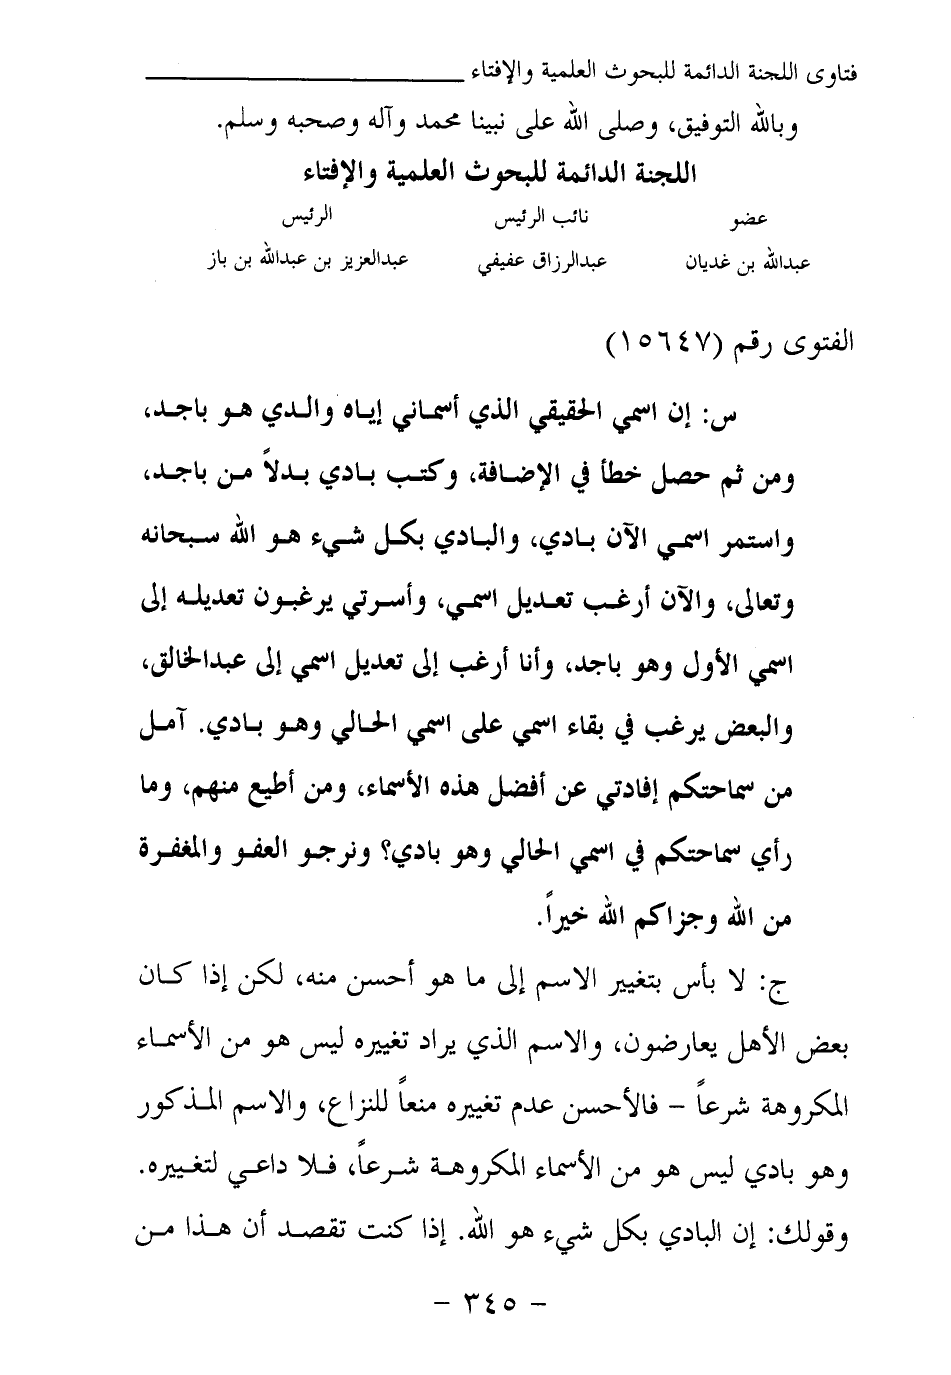 فتاوى اللجنة الدائمة للبحوث العلمية والإفتاء
وبالله التوفيق، وصلى الله على نبينا محمد وآله وصحبه وسلم.
اللجنة الدائمة للبحوث العلمية والإفتاء
عضو نائب الرئيس الرئيس
عبدالله بن غديان عبدالرزاق عفيفي عبدالعزيز بن عبدالله بن باز
الفتوى رقم (١٥٦٤٧)
س: إن اسمي الحقيقي الذي أسماني إياه والدي هو باجد،
ومن ثم حصل خطأ في الإضافة، وكتب بادي بدلاً من باجد،
واستمر اسمي الآن بادي، والبادي بكل شيء هو الله سبحانه
وتعالى، والآن أرغب تعديل اسمي، وأسرتي يرغبون تعديله إلى
اسمي الأول وهو باجد، وأنا أرغب إلى تعديل اسمي إلى عبدالخالق،
والبعض يرغب في بقاء اسمي على اسمي الحالي وهو بادي. آمل
من سماحتكم إفادتي عن أفضل هذه الأسماء، ومن أطيع منهم، وما
رأي سماحتكم في اسمي الحالي وهو بادي؟ ونرجو العفو والمغفرة
من الله وجزاكم الله خيراً.
ج: لا بأس بتغيير الاسم إلى ما هو أحسن منه، لكن إذا كان
بعض الأهل يعارضون، والاسم الذي يراد تغييره ليس هو من الأسماء
المكروهة شرعاً - فالأحسن عدم تغييره منعاً للنزاع، والاسم المذكور
وهو بادي ليس هو من الأسماء المكروهة شرعاً، فلا داعي لتغييره.
وقولك: إن البادي بكل شيء هو الله. إذا كنت تقصد أن هذا من
- ٣٤٥ -